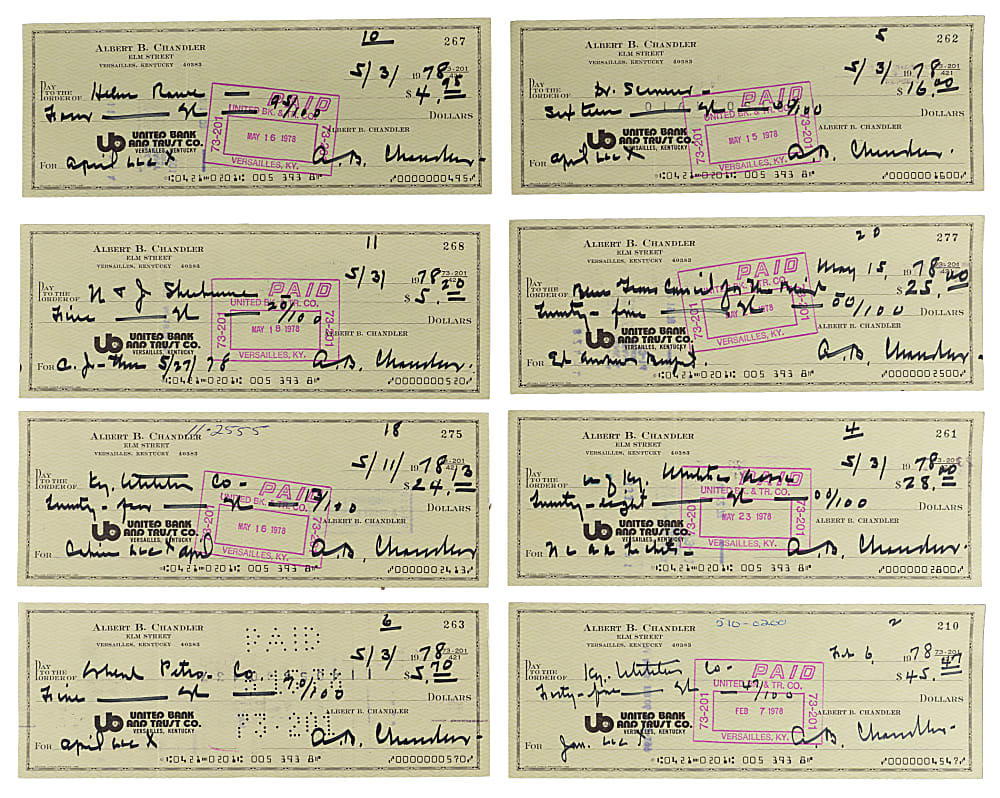 10
ALBERT B. CHANDLER 267
ELM STREET
VERSAILLES, KENTUCKY 40383
5/3/ 1978 73-201
421
PAY
TO THE
ORDER OF Helen Rowe $ 4.95
Four 95/100 DOLLARS
PAID
UNITED BK. & TR. CO.
73-201 MAY 16 1978 73-201
VERSAILLES, KY.
ALBERT B. CHANDLER
ub UNITED BANK
AND TRUST CO.
VERSAILLES, KENTUCKY
FOR April a/c X A.B. Chandler
⑆0421⑉0201⑆ 005 393 8⑈ ⑈0000000495⑈
5
ALBERT B. CHANDLER 262
ELM STREET
VERSAILLES, KENTUCKY 40383
5/3/ 1978
421
PAY
TO THE
ORDER OF Dr. $ 16.00
Sixteen 00/100 DOLLARS
PAID
UNITED BK. & TR. CO.
73-201 MAY 15 1978 73-201
VERSAILLES, KY.
ALBERT B. CHANDLER
ub UNITED BANK
AND TRUST CO.
VERSAILLES, KENTUCKY
FOR April a/c X A.B. Chandler
⑆0421⑉0201⑆ 005 393 8⑈ ⑈0000001600⑈
11
ALBERT B. CHANDLER 268
ELM STREET
VERSAILLES, KENTUCKY 40383
5/3/ 1978 73-201
421
PAY
TO THE
ORDER OF N & J $ 5.20
Five 20/100 DOLLARS
PAID
UNITED BK. & TR. CO.
73-201 MAY 18 1978 73-201
VERSAILLES, KY.
ALBERT B. CHANDLER
ub UNITED BANK
AND TRUST CO.
VERSAILLES, KENTUCKY
FOR C. J- 5/27/78 A.B. Chandler
⑆0421⑉0201⑆ 005 393 8⑈ ⑈0000000520⑈
20
ALBERT B. CHANDLER 277
ELM STREET
VERSAILLES, KENTUCKY 40383
May 15, 1978
PAY
TO THE
ORDER OF Blue Grass Council for the $ 25.00
Twenty-five 00/100 DOLLARS
PAID
UNITED BK. & TR. CO.
73-201 MAY 1978 73-201
VERSAILLES, KY.
ALBERT B. CHANDLER
ub UNITED BANK
AND TRUST CO.
VERSAILLES, KENTUCKY
FOR Ed A.B. Chandler
⑆0421⑉0201⑆ 005 393 8⑈ ⑈0000002500⑈
11-2555 18
ALBERT B. CHANDLER 275
ELM STREET
VERSAILLES, KENTUCKY 40383
5/11/ 1978 73-201
421
PAY
TO THE
ORDER OF Ky. Utilities Co- $ 24.13
Twenty-four 13/100 DOLLARS
PAID
UNITED BK. & TR. CO.
73-201 MAY 16 1978 73-201
VERSAILLES, KY.
ALBERT B. CHANDLER
ub UNITED BANK
AND TRUST CO.
VERSAILLES, KENTUCKY
FOR Cabin a/c X April A.B. Chandler
⑆0421⑉0201⑆ 005 393 8⑈ ⑈0000002413⑈
4
ALBERT B. CHANDLER 261
ELM STREET
VERSAILLES, KENTUCKY 40383
5/3/ 1978 73-201
PAY
TO THE
ORDER OF U of Ky. Athletic $ 28.00
Twenty-eight 00/100 DOLLARS
PAID
UNITED BK. & TR. CO.
73-201 MAY 23 1978 73-201
VERSAILLES, KY.
ALBERT B. CHANDLER
ub UNITED BANK
AND TRUST CO.
VERSAILLES, KENTUCKY
FOR N C A A Tickets- A.B. Chandler
⑆0421⑉0201⑆ 005 393 8⑈ ⑈0000002800⑈
6
ALBERT B. CHANDLER 263
ELM STREET
VERSAILLES, KENTUCKY 40383
PAID
5/3/ 1978 73-201
421
PAY
TO THE
ORDER OF Petro- Co. $ 5.70
Five 70/100 DOLLARS
73-201
ALBERT B. CHANDLER
ub UNITED BANK
AND TRUST CO.
VERSAILLES, KENTUCKY
FOR April a/c X A.B. Chandler
⑆0421⑉0201⑆ 005 393 8⑈ ⑈0000000570⑈
510-0200 2
ALBERT B. CHANDLER 210
ELM STREET
VERSAILLES, KENTUCKY 40383
Feb 6, 1978 73-201
421
PAY
TO THE
ORDER OF Ky. Utilities Co- $ 45.47
Forty-five 47/100 DOLLARS
PAID
UNITED BK. & TR. CO.
73-201 FEB 7 1978 73-201
VERSAILLES, KY.
ALBERT B. CHANDLER
ub UNITED BANK
AND TRUST CO.
VERSAILLES, KENTUCKY
FOR Jan. a/c X A.B. Chandler
⑆0421⑉0201⑆ 005 393 8⑈ ⑈0000004547⑈